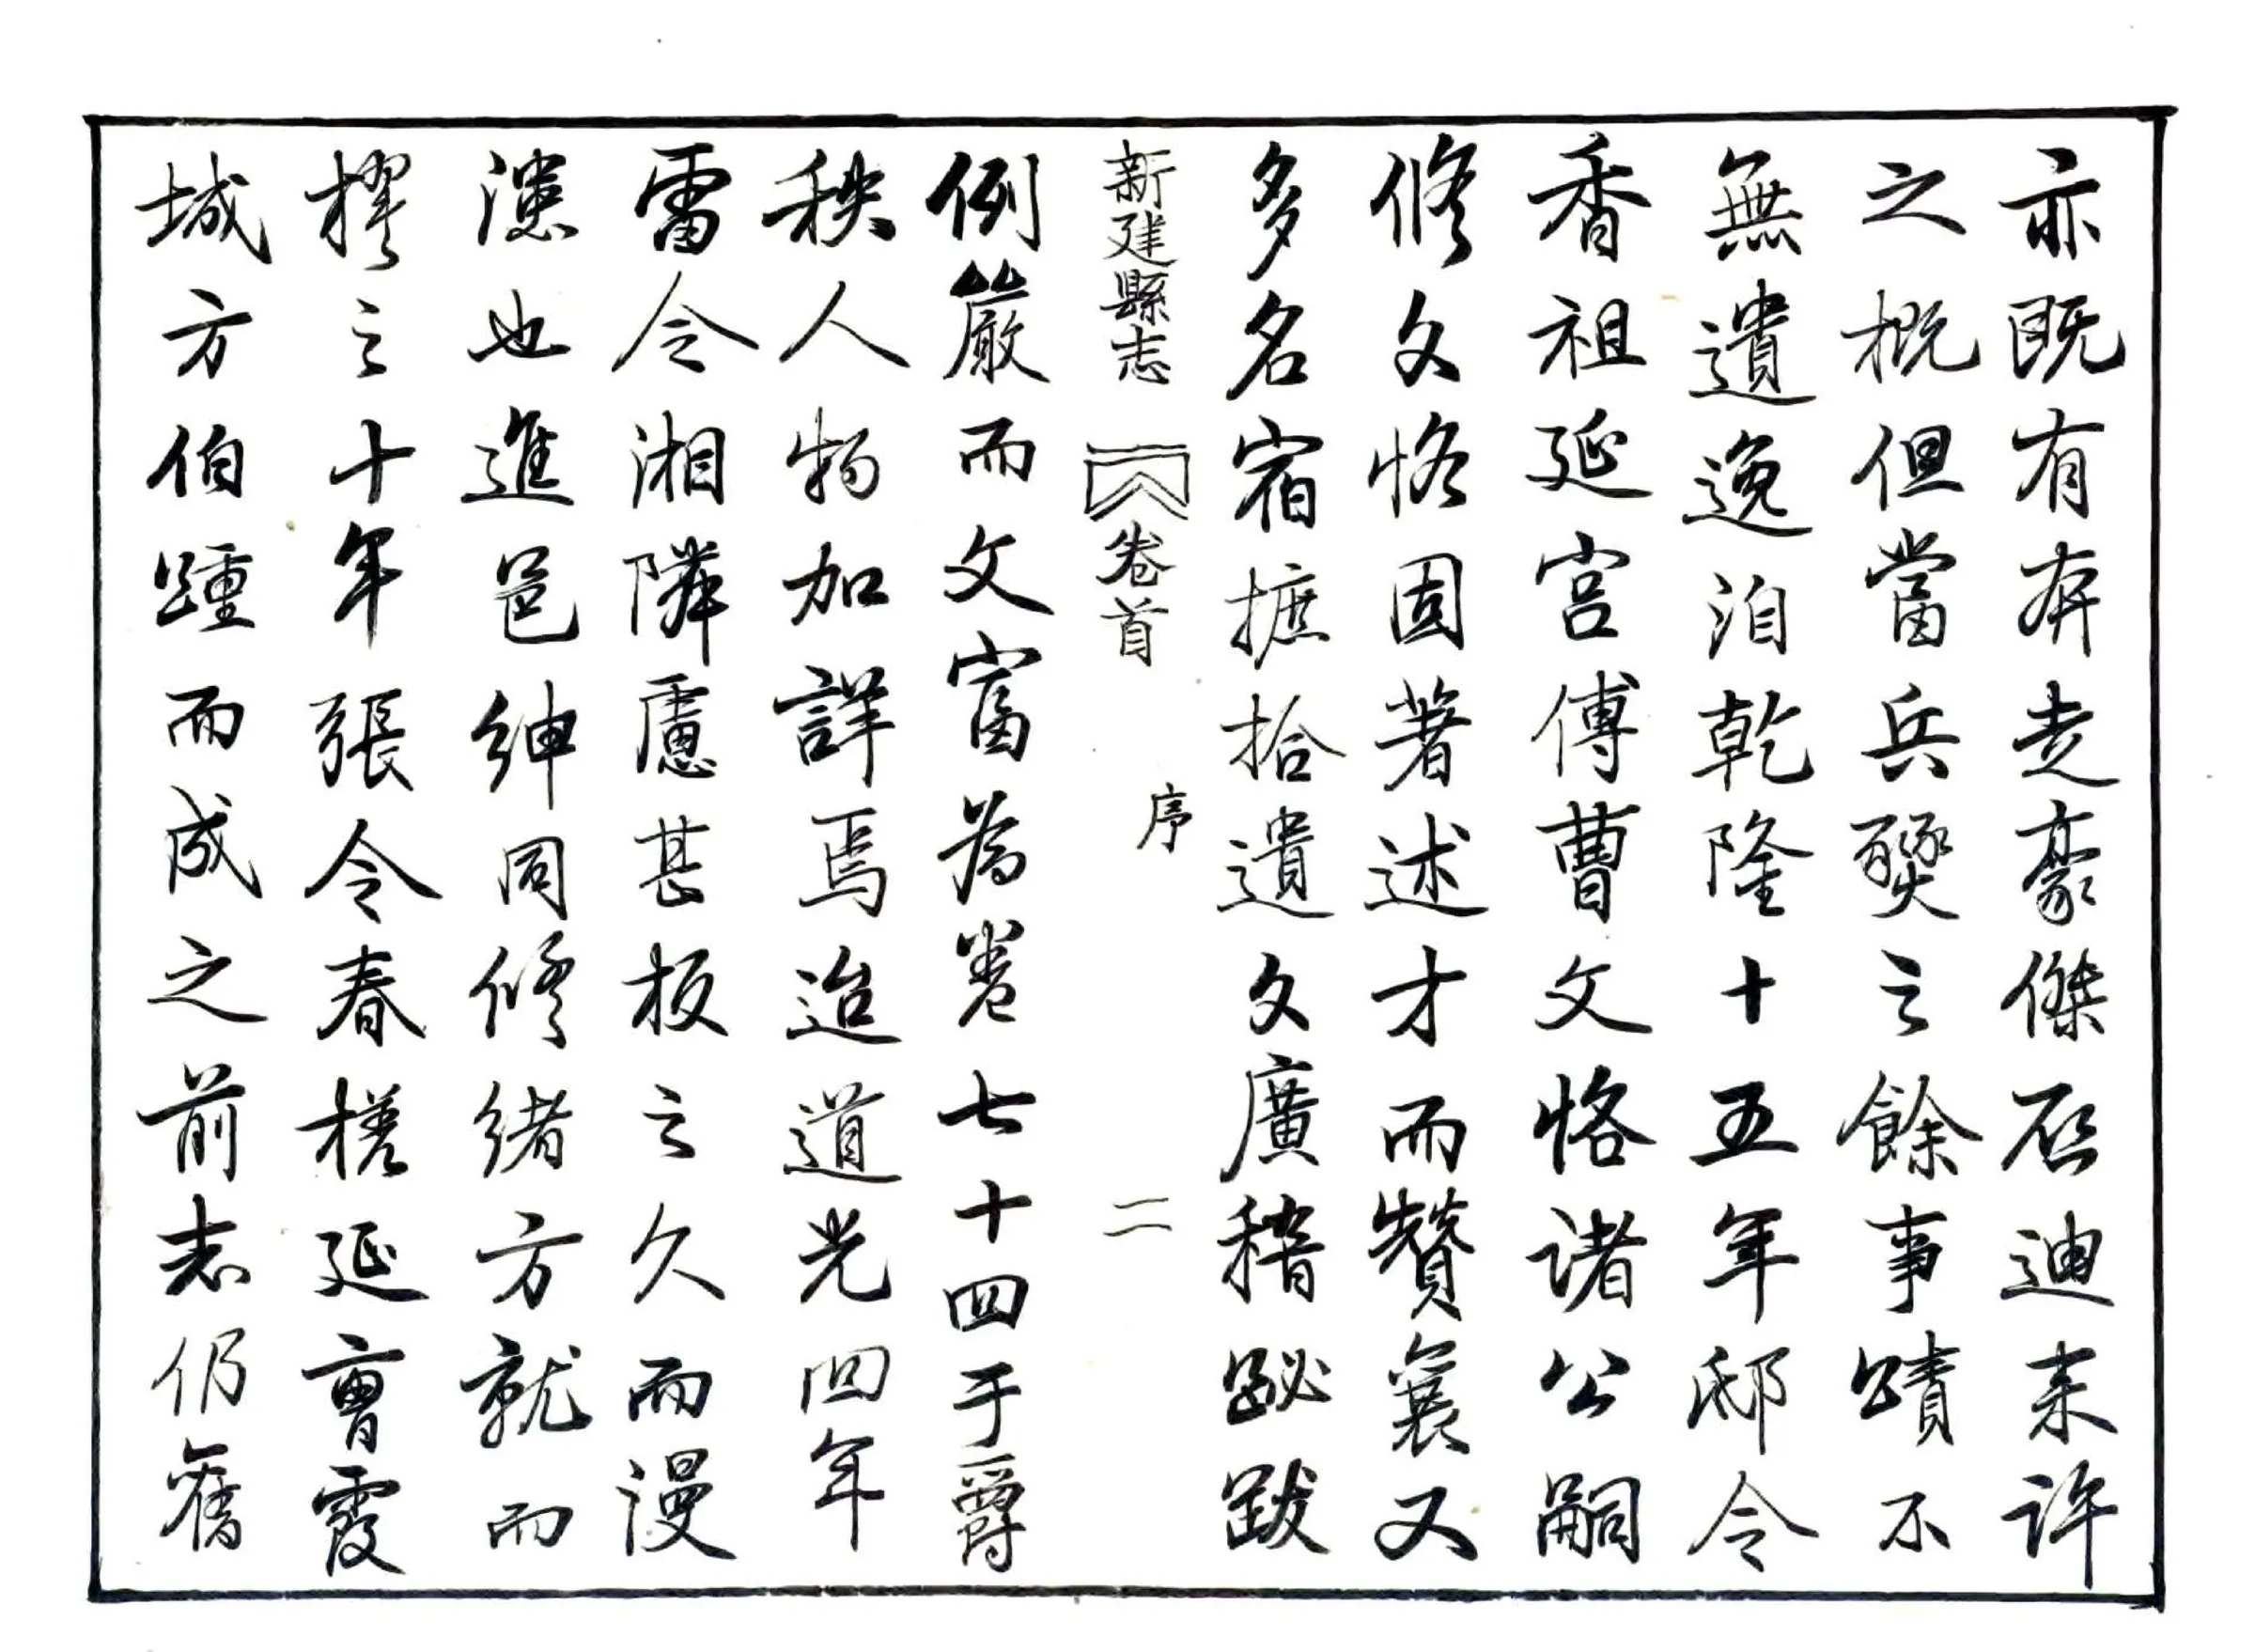 亦既有奔走豪傑啟迪来許
之概但當兵燹之餘事蹟不
無遺逸洎乾隆十五年邸令
香祖延宮傅曹文恪諸公嗣
修文恪固著述才而贊襄又
多名宿摭拾遺文廣稽跋
新建縣志 卷首 序 二
例嚴而文富為卷七十四于爵
秩人物加詳焉迨道光四年
雷令湘隣慮甚板之久而漫
漶也進邑紳同修緒方就而
擢之十年張令春槎延曹霞
城方伯踵而成之前志仍舊